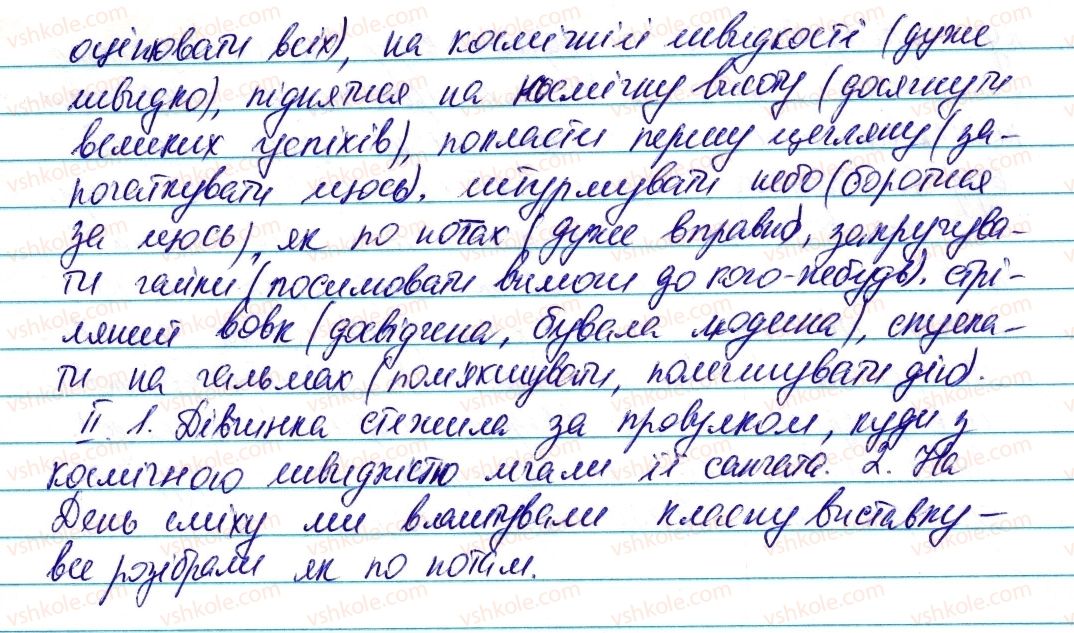 оцінювати всіх), на космічній швидкості (дуже
швидко), піднятися на космічну висоту (досягнути
великих успіхів), покласти першу цеглину (за-
початкувати щось), штурмувати небо (боротися
за щось), як по нотах (дуже вправно), закручува-
ти гайки (посилювати вимоги до кого-небудь), стрі-
ляний вовк (досвідчена, бувала людина), спуска-
ти на гальмах (пом'якшувати, полегшувати дію).
II. 1. Дівчинка стежила за провулком, куди з
космічною швидкістю мчали її санчата. 2. На
День сміху ми влаштували класну виставку –
все розібрали як по нотам.